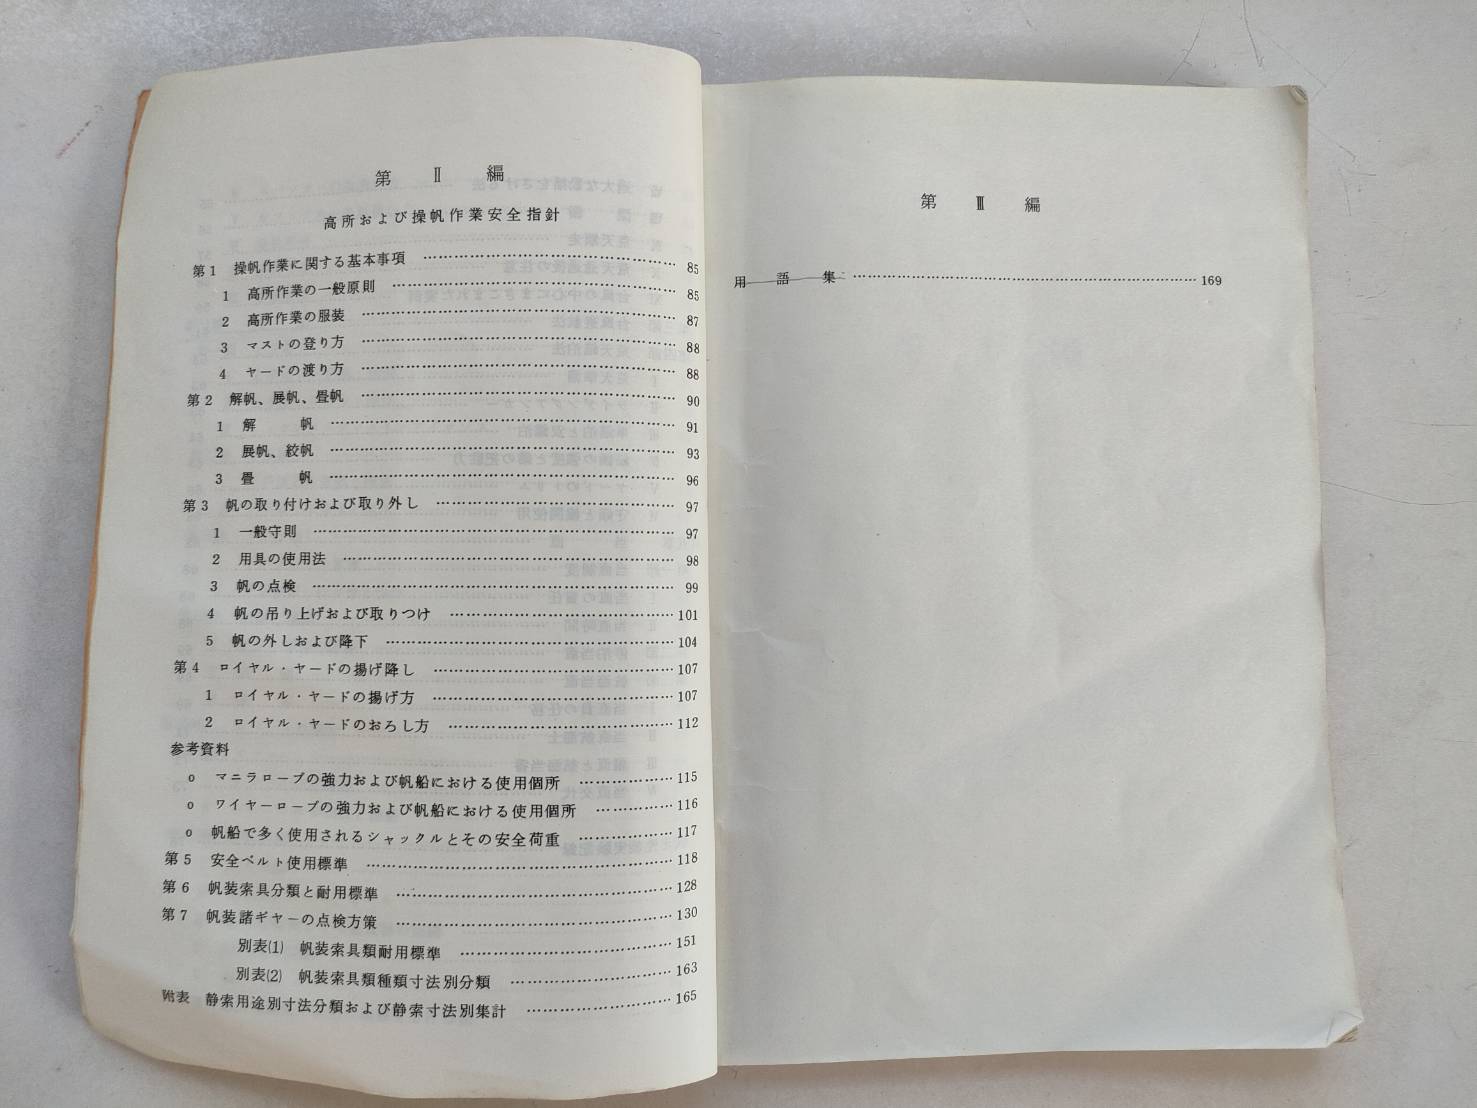 第 Ⅱ 編
高所および操帆作業安全指針
第1 操帆作業に関する基本事項 ……………………………… 85
1 高所作業の一般原則 ……………………………… 85
2 高所作業の服装 ……………………………… 87
3 マストの登り方 ……………………………… 88
4 ヤードの渡り方 ……………………………… 88
第2 解帆、展帆、畳帆 ……………………………… 90
1 解 帆 ……………………………… 91
2 展帆、絞帆 ……………………………… 93
3 畳 帆 ……………………………… 96
第3 帆の取り付けおよび取り外し ……………………………… 97
1 一般守則 ……………………………… 97
2 用具の使用法 ……………………………… 98
3 帆の点検 ……………………………… 99
4 帆の吊り上げおよび取りつけ ……………………………… 101
5 帆の外しおよび降下 ……………………………… 104
第4 ロイヤル・ヤードの揚げ降し ……………………………… 107
1 ロイヤル・ヤードの揚げ方 ……………………………… 107
2 ロイヤル・ヤードのおろし方 ……………………………… 112
参考資料
o マニラロープの強力および帆船における使用個所 …………… 115
o ワイヤーロープの強力および帆船における使用個所 ………… 116
o 帆船で多く使用されるシャックルとその安全荷重 …………… 117
第5 安全ベルト使用標準 ……………………………… 118
第6 帆装索具分類と耐用標準 ……………………………… 128
第7 帆装諸ギヤーの点検方策 ……………………………… 130
別表(1) 帆装索具類耐用標準 ……………………………… 151
別表(2) 帆装索具類種類寸法別分類 ……………………… 163
附表 静索用途別寸法分類および静索寸法別集計 ……………… 165
第 Ⅲ 編
用 語 集 ……………………………………………… 169